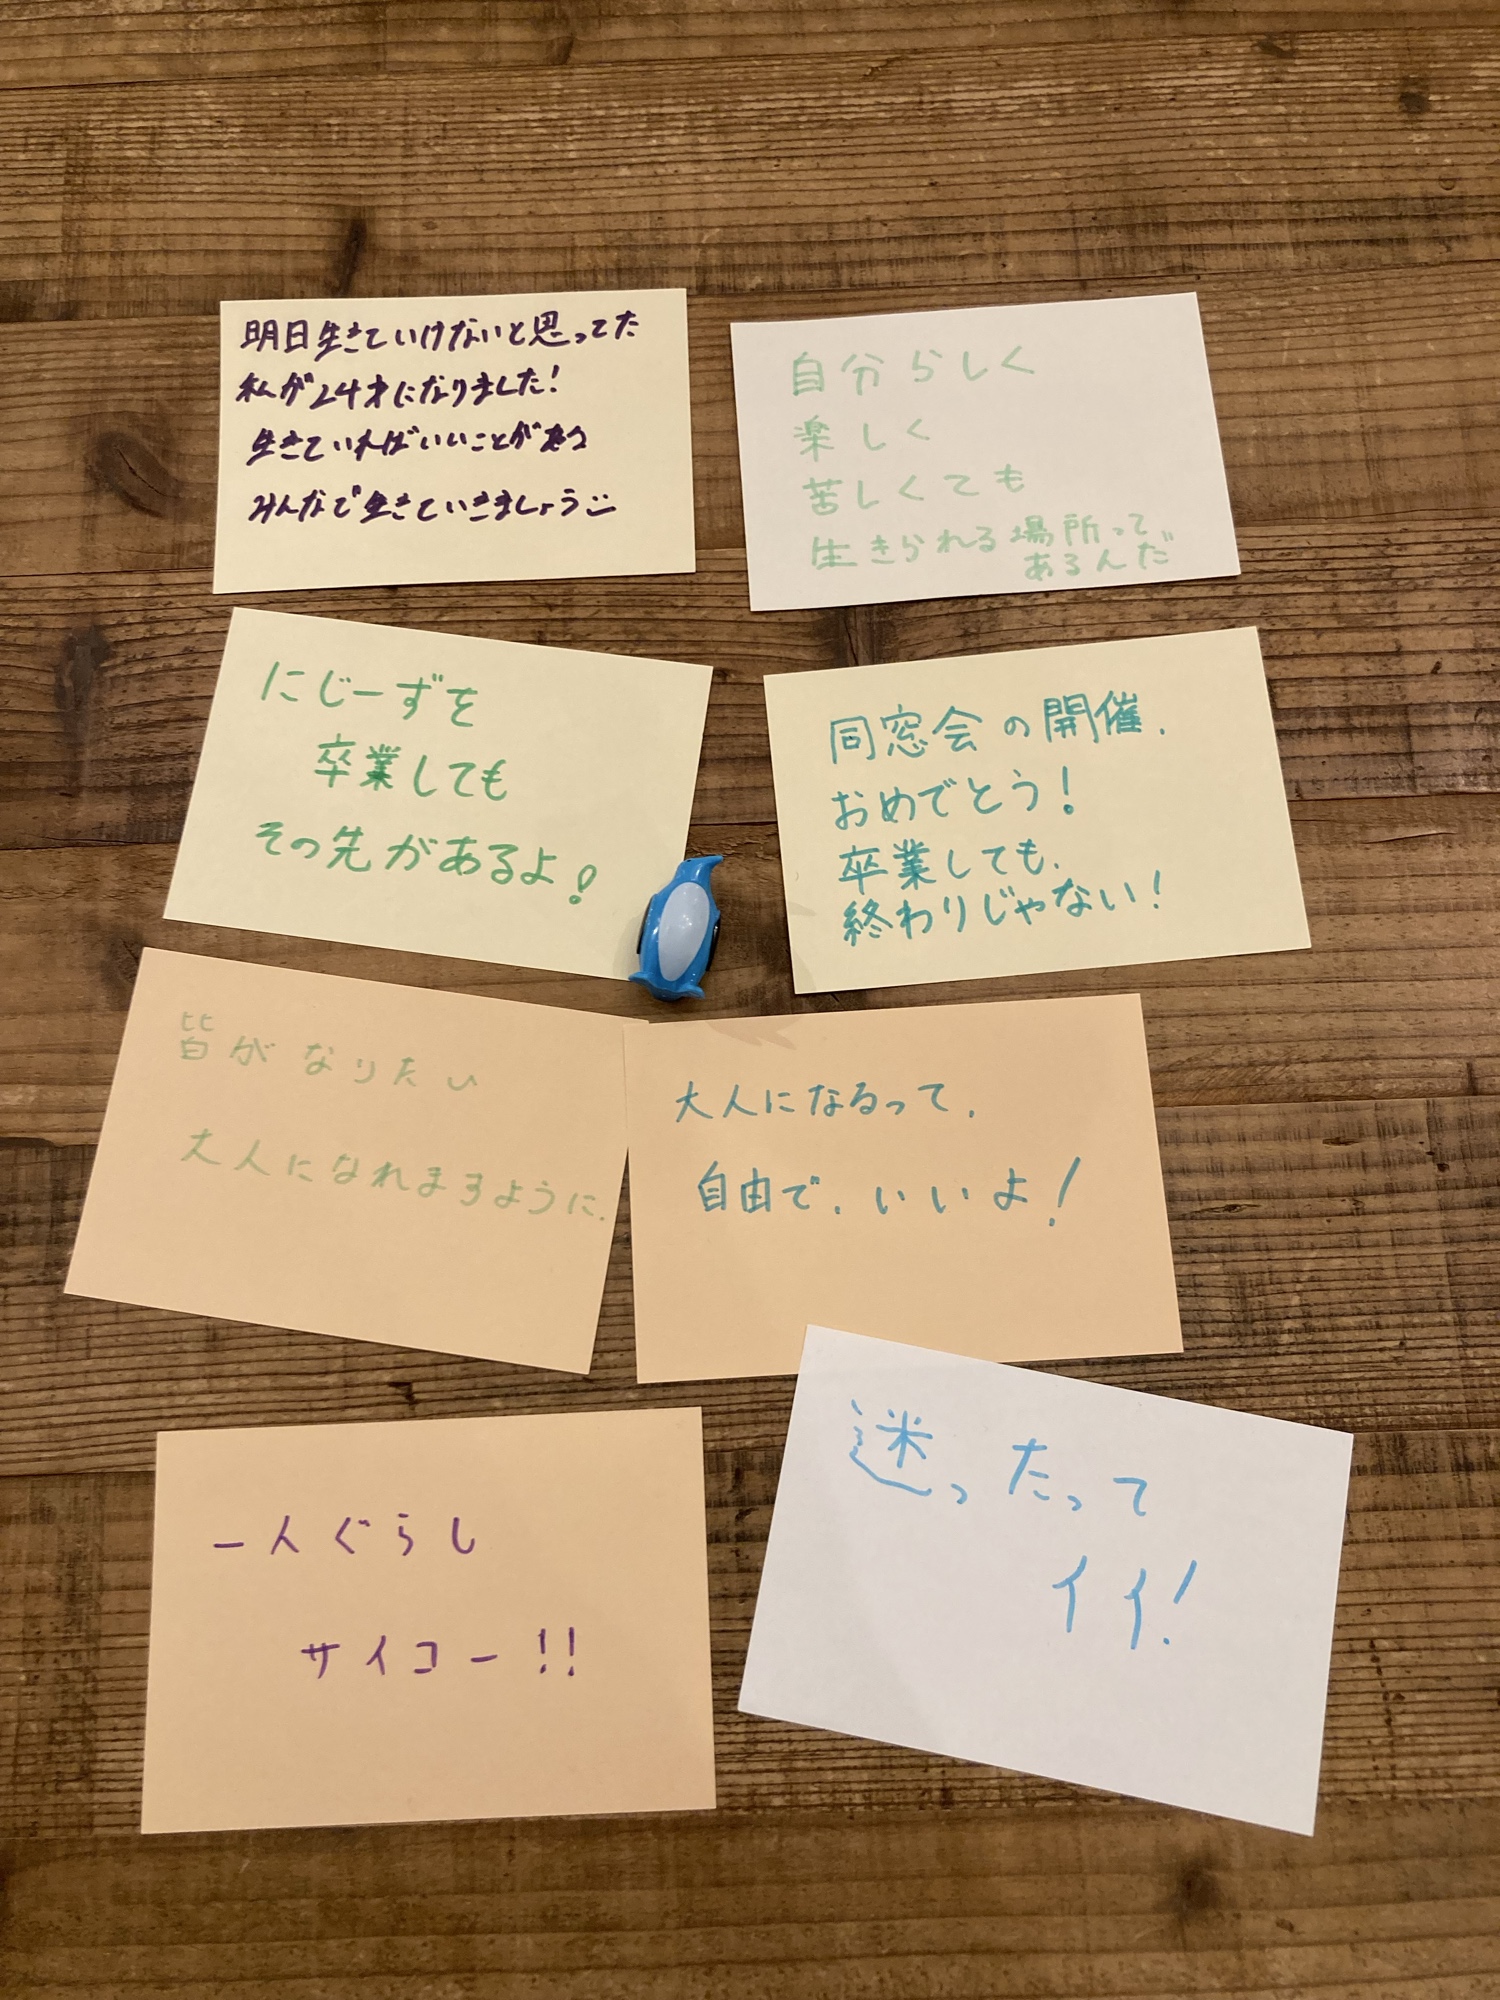 明日生きていけないと思ってた
私が24才になりました!
生きていればいいことがある
みんなで生きていきましょう
自分らしく
楽しく
苦しくても
生きられる場所って
あるんだ
にじーずを
卒業しても
その先があるよ!
同窓会の開催、
おめでとう!
卒業しても、
終わりじゃない!
皆がなりたい
大人になれますように、
大人になるって、
自由で、いいよ!
一人ぐらし
サイコー!!
迷ったって
イイ!